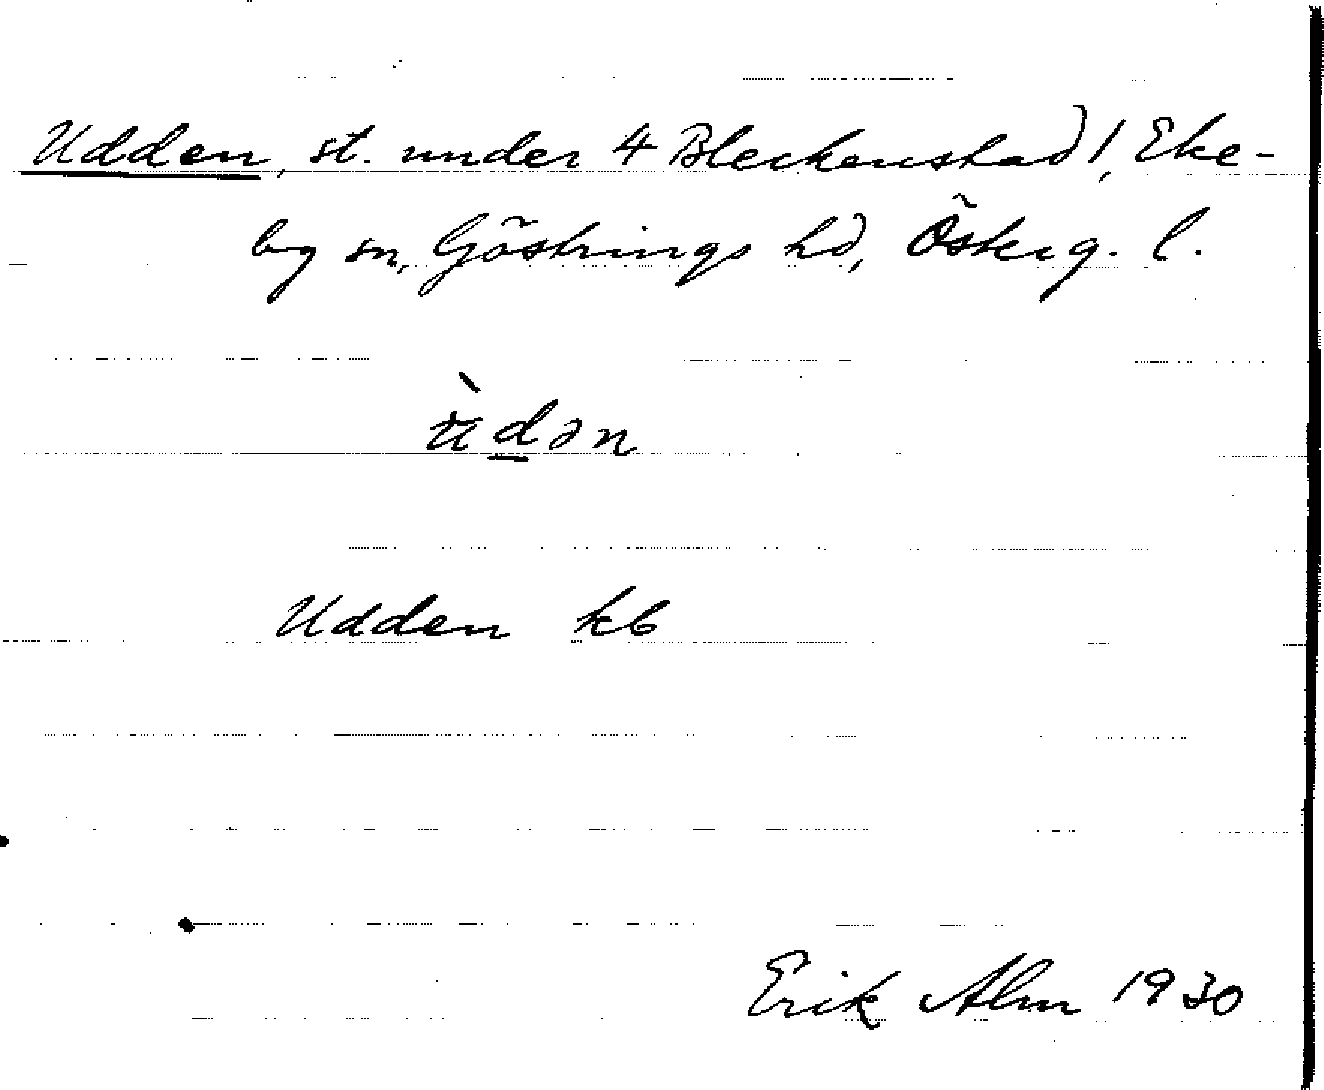 Udden, st. under 4 Bleckenstad!, Eke-
by sn, Göstrings hd, Österg. l.
ùdən
Udden kb
Erik Alm 1930